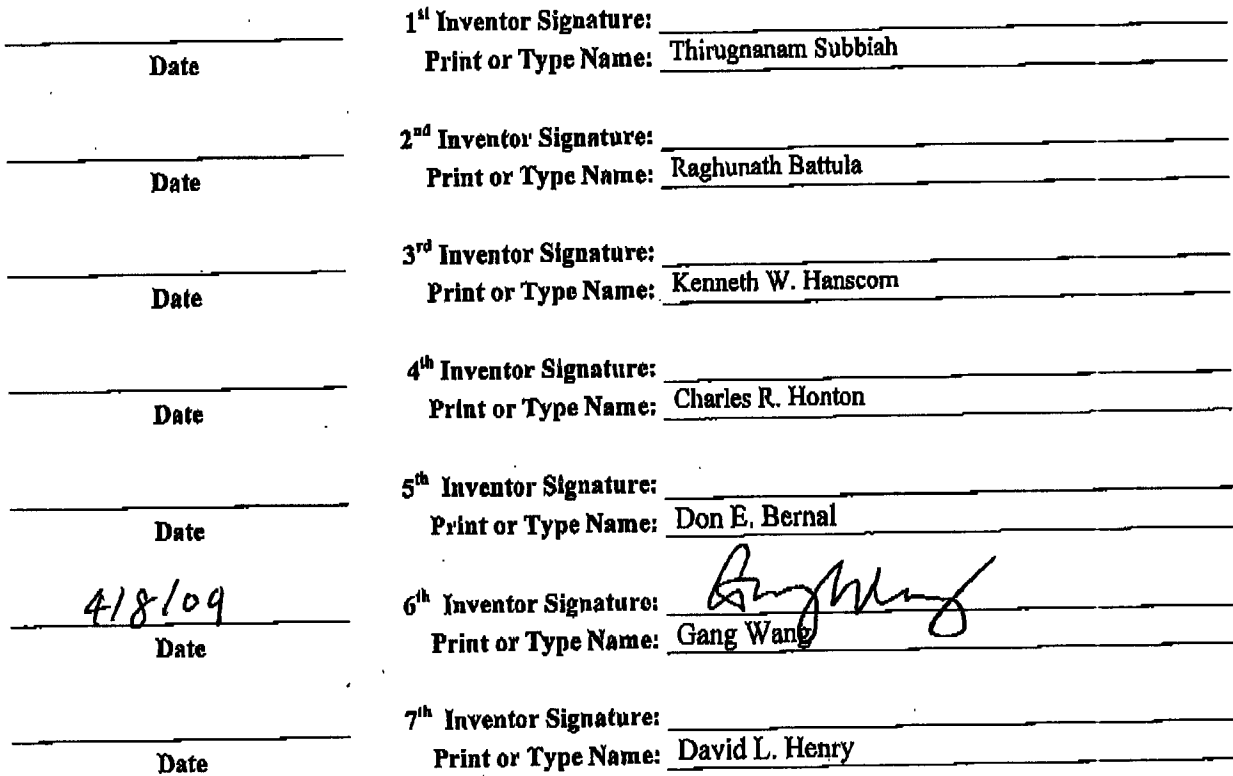 1st Inventor Signature:
Date Print or Type Name: Thirugnanam Subbiah
2nd Inventor Signature:
Date Print or Type Name: Raghunath Battula
3rd Inventor Signature:
Date Print or Type Name: Kenneth W. Hanscom
4th Inventor Signature:
Date Print or Type Name: Charles R. Honton
5th Inventor Signature:
Date Print or Type Name: Don E. Bernal
4/8/09 6th Inventor Signature: Gang Wang
Date Print or Type Name: Gang Wang
7th Inventor Signature:
Date Print or Type Name: David L. Henry